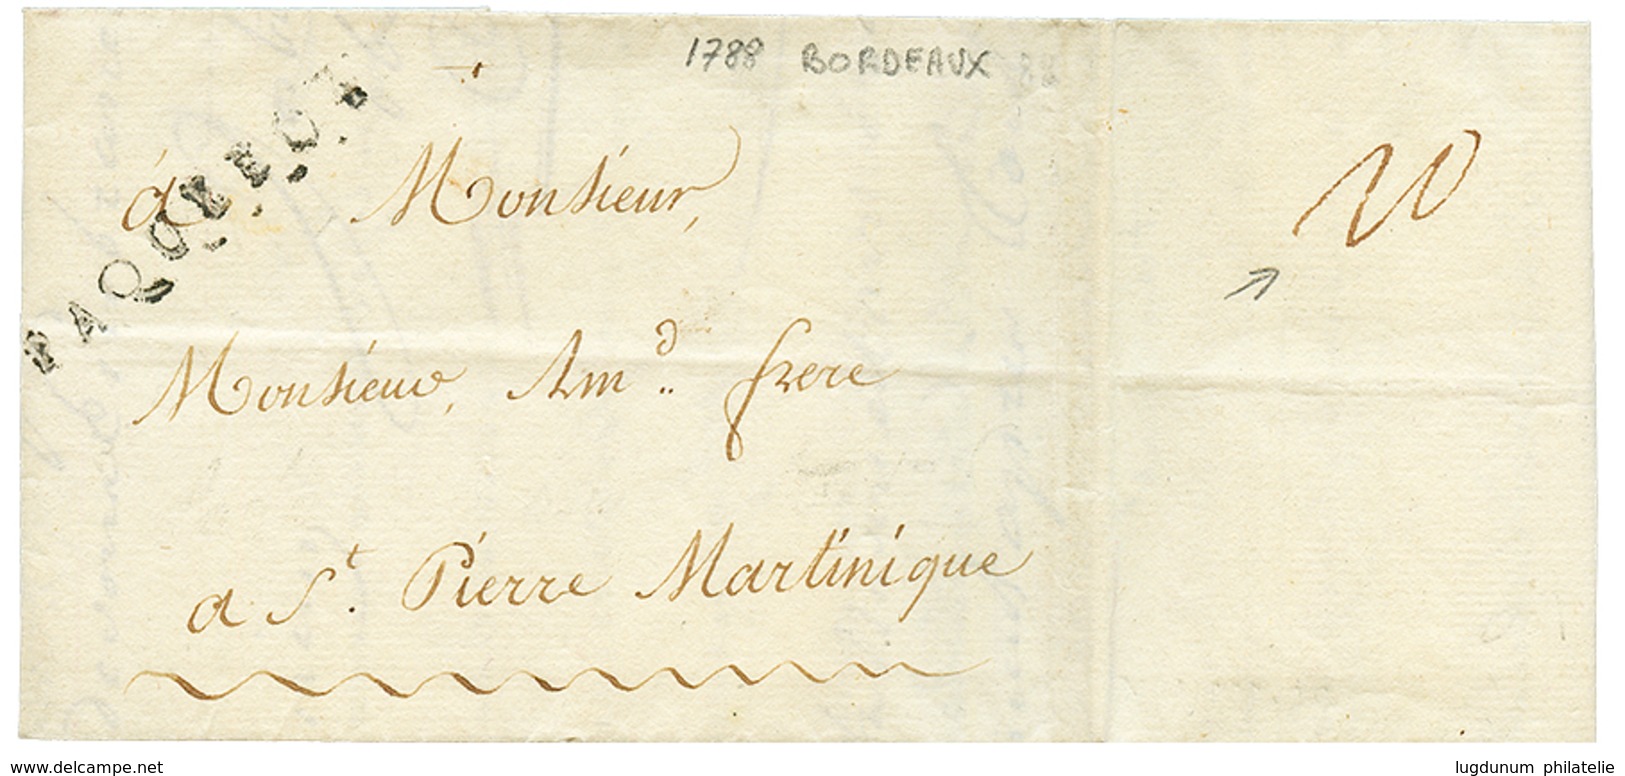 1788 BORDEAUX
PAQUEBOT
à Monsieur,
Monsieur, Am.d frere
a St. Pierre Martinique
www.delcampe.net
lugdunum philatelie